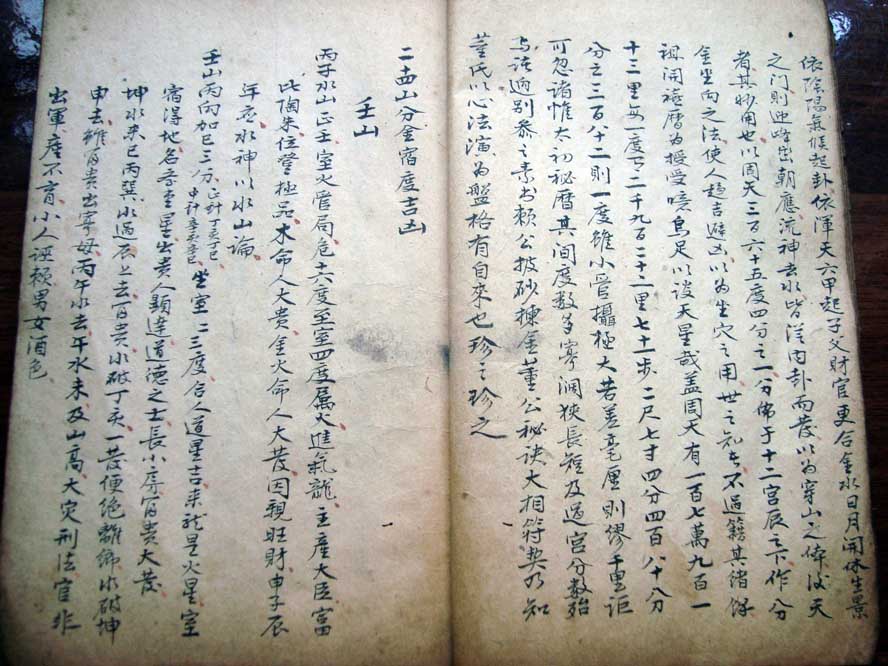 依陰陽氣候起卦依渾天六甲起子父財官更合金水日月開休生景
之门則迎嶂出朝應流神去水皆從内卦而發以為穿山之俾後天
者其妙用也以周天三百六十五度四分之一分佈于十二宫辰之下作分
金坐向之法使人趋吉避凶以為坐穴之用世之知者不過籍其绪餘
視開禧曆為授受噫烏足以談天星哉盖周天有一百七萬九百一
十三里每一度下二千九百二十三里七十一步二尺七寸四分四百八十分
分之三百八十二則一度雖小管攝極大若差毫厘則繆千里讵
可忽诸惟太初秘曆其间度数多寡濶狭長短及過宫分数殆
与诸廼别叅之素书赖公披砂揀金董公秘诀大相符契乃知
董氏以心法演為盤格有自來也珍之珍之
二十四山分金宿度吉凶
壬山
丙子水山正壬室火管局危十六度至室四度属火進氣龍主産大臣富
比陶朱位登極品木命人大贵金火命人大發因親旺財申子辰
年應水神以水山論
壬山丙向加巳三分正針丁亥丁巳中針辛亥辛巳坐室二三度合人道星吉来龙是火星室
宿得地名奎星出贵人顯達道德之士長小房富贵大發
坤水来巳丙巽水過辰上去富贵水破丁亥一發便绝離鄉水破坤
申去雖富贵出寡母丙午水去午水未及山高大灾刑法官非
出軍産不育小人诬赖男女酒色